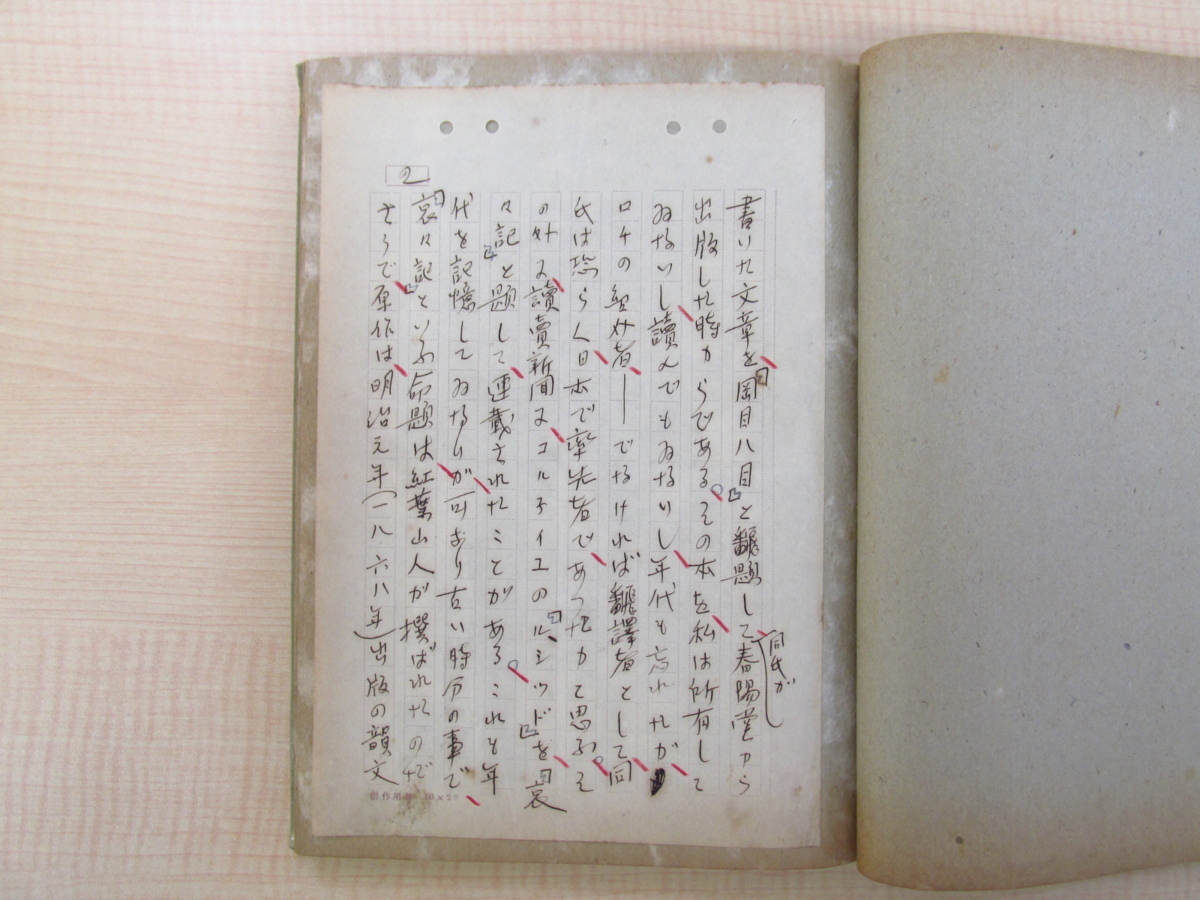 2
書いた文章を『岡目八目』と飜題して同氏が春陽堂から
出版した時からである。その本を私は所有して
ゐないし讀んでもゐないし年代も忘れたが
ロチの紹介者――でなければ飜譯者として同
氏は恐らく日本で率先者であつたかと思ふ。そ
の外に讀賣新聞にコルネイユの『ル・シッド』を『哀
々記』と題して連載されたことがある。これも年
代を記憶してゐないが可なり古い時分の事で
『哀々記』といふ命題は紅葉山人が撰ばれたので
さうで原作は明治元年(一八六八年)出版の韻文
創作用 10×20